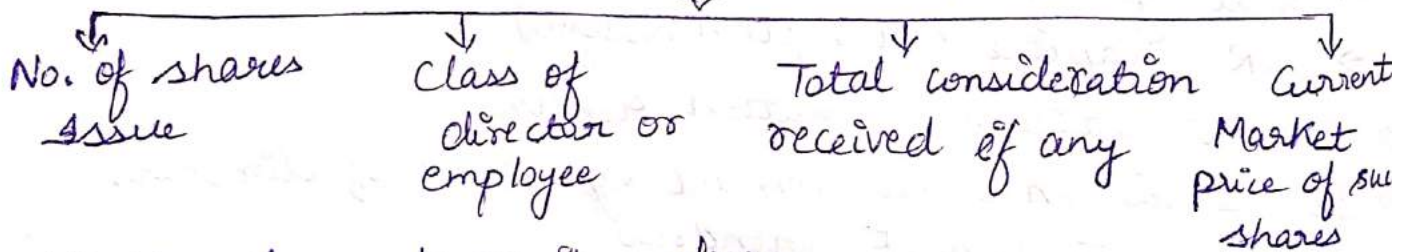 No. of shares
Issue
Class of
director or
employee
Total consideration
received if any
Current
Market
price of
shares